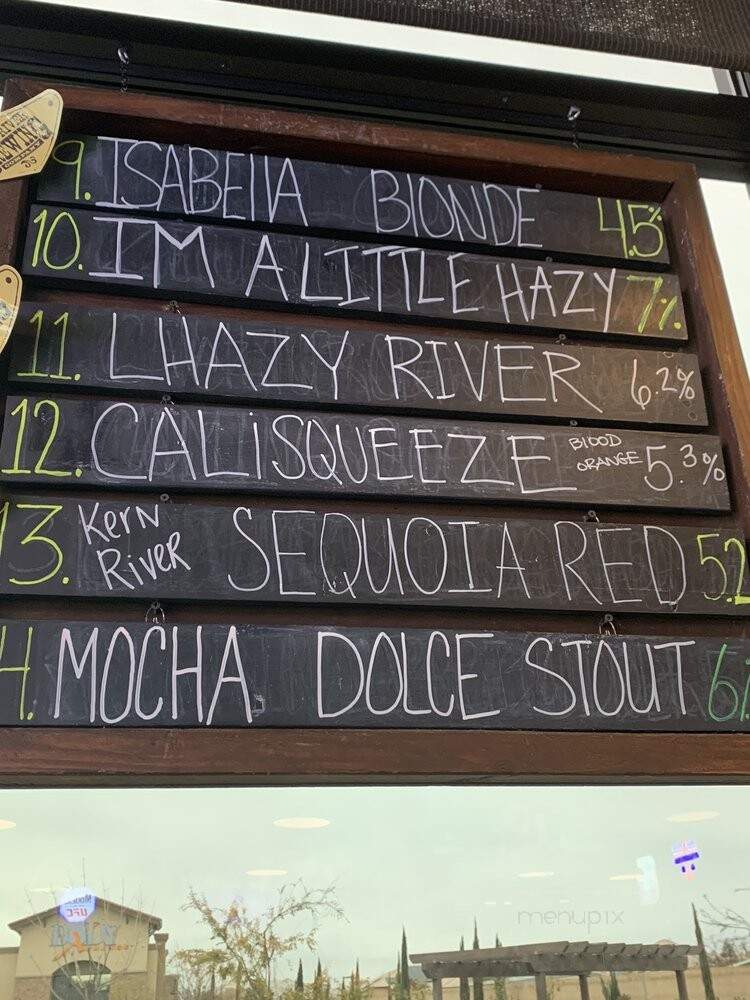 9. ISABELLA BLONDE 4.5%
10. IM A LITTLE HAZY 7%
11. LHAZY RIVER 6.2%
12. CALiSQUEEZE BLOOD ORANGE 5.3%
13. KerN River SEQUOIA RED 5.2
14. MOCHA DOLCE STOUT
menupix
UFC